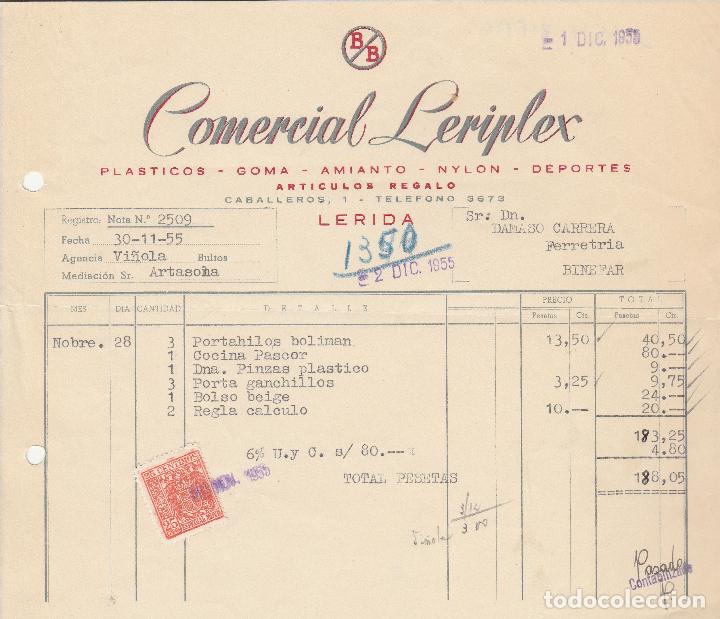 B B
1 DIC. 1955
Comercial Leriplex
PLASTICOS - GOMA - AMIANTO - NYLON - DEPORTES
ARTICULOS REGALO
CABALLEROS, 1 - TELEFONO 3673
LERIDA
Registro: Nota N.º 2509
Fecha 30-11-55
Agencia Viñola Bultos
Mediación Sr. Artasona
1350
2 DIC. 1955
Sr: Dn.
DAMASO CARRERA
Ferretria
BINEFAR
MES DIA CANTIDAD DETALLE PRECIO TOTAL
Pesetas Cts. Pesetas Cts.
Nobre. 28 3 Portahilos boliman 13,50 40,50
1 Cocina Pascor 80.--
1 Dna. Pinzas plastico 9.--
3 Porta ganchillos 3,25 9,75
1 Bolso beige 24.--
2 Regla calculo 10.-- 20.--
183,25
6% U.y C. s/ 80.-- 4.80
TOTAL PESETAS 188,05
25 CENTIMOS
NOV. 1955
3/12
Viñola 3.00
Pasado
Contabilizado
todocoleccion.net